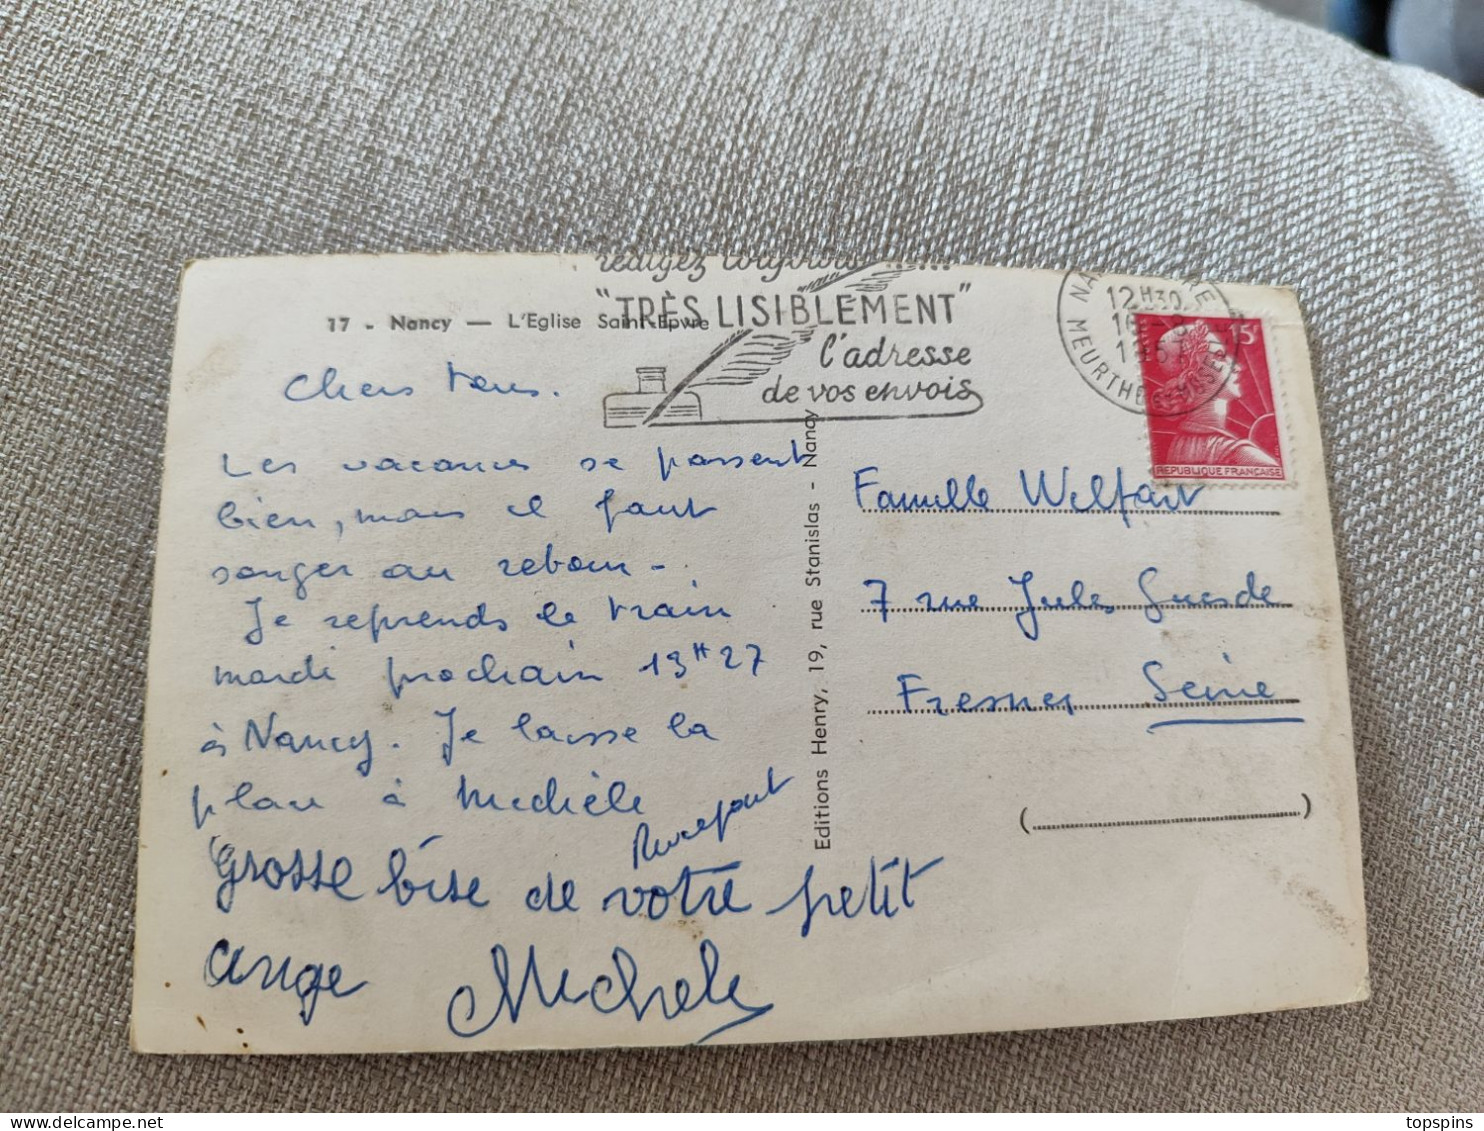 17 - Nancy — L'Eglise Saint-Epvre
rédigez toujours
"TRÈS LISIBLEMENT"
l'adresse
de vos envois
12H30
MEURTHE-ET-MOSELLE
15F
REPUBLIQUE FRANÇAISE
Chers tous.
Les vacances se passent
bien, mais il faut
songer au retour.
Je reprends le train
mardi prochain 13H27
à Nancy. Je laisse la
place à Michèle
Grosse bise de votre petit
ange Michele
Editions Henry, 19, rue Stanislas - Nancy
Famille Welfart
7 rue Jules Guesde
Fresnes Seine
(                    )
topspins